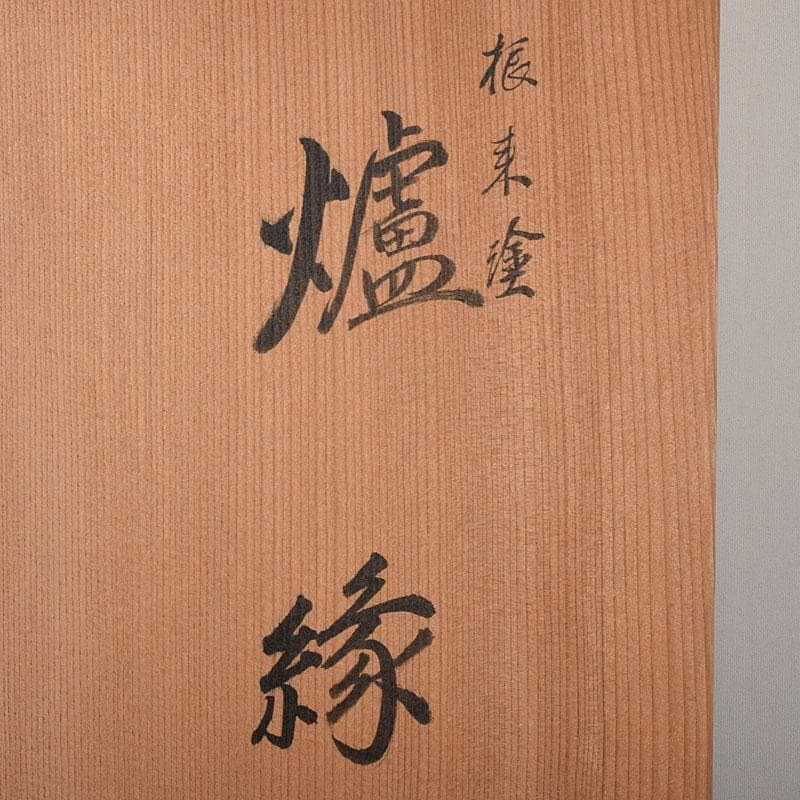 根来塗
爐縁